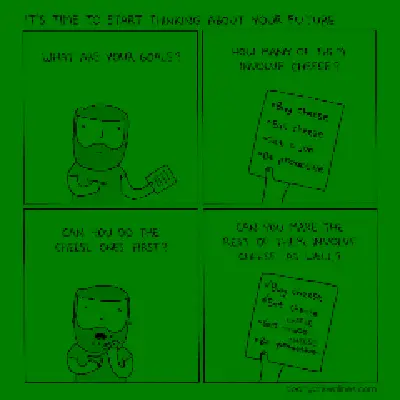 IT'S TIME TO START THINKING ABOUT YOUR FUTURE
WHAT ARE YOUR GOALS?
HOW MANY OF THEM
INVOLVE CHEESE?
• Buy cheese
• Eat cheese
• Get a job
• Be productive
CAN YOU DO THE
CHEESE ONES FIRST?
CAN YOU MAKE THE
REST OF THEM INVOLVE
CHEESE AS WELL?
• Buy cheese
• Eat cheese
• Get
• Be